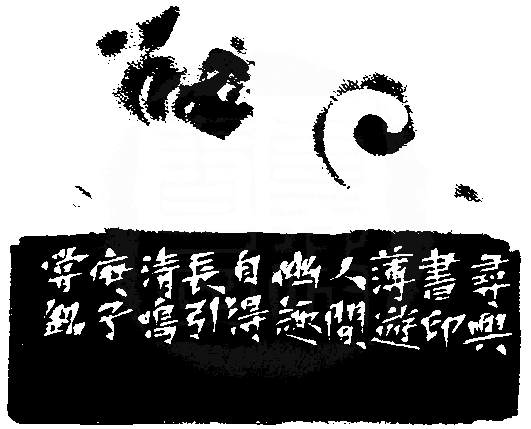 尋興
書印
薄遊
人間
幽趣
自得
長引
清鳴
庚子